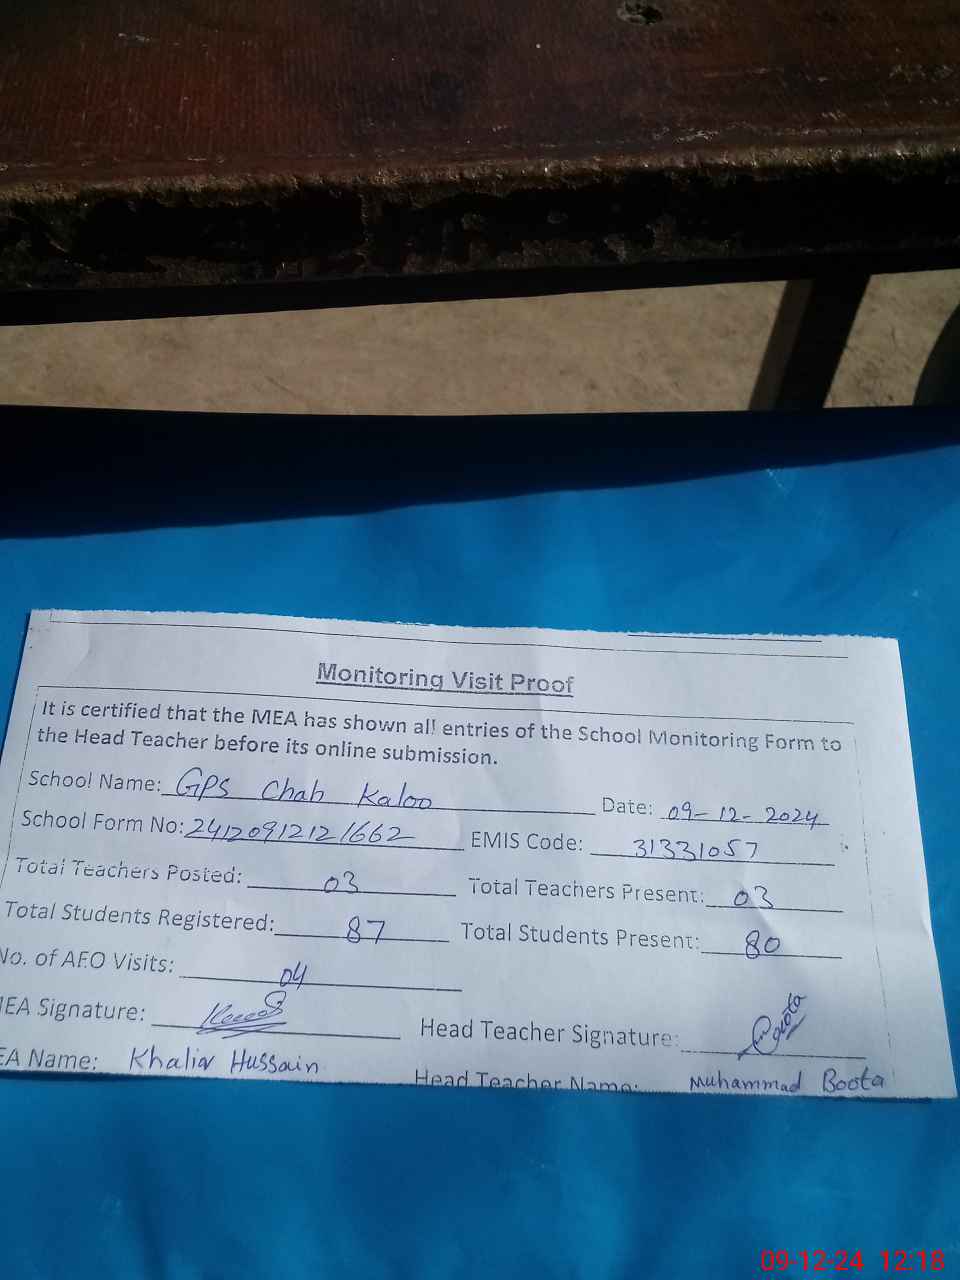 Monitoring Visit Proof
It is certified that the MEA has shown all entries of the School Monitoring Form to
the Head Teacher before its online submission.
School Name: GPS Chah Kaloo Date: 09-12-2024
School Form No: 24120912121662 EMIS Code: 31331057
Total Teachers Posted: 03 Total Teachers Present: 03
Total Students Registered: 87 Total Students Present: 80
No. of AEO Visits: 04
MEA Signature: Head Teacher Signature: Boota
EA Name: Hussain Head Teacher Name: Muhammad Boota
09-12-24 12:18